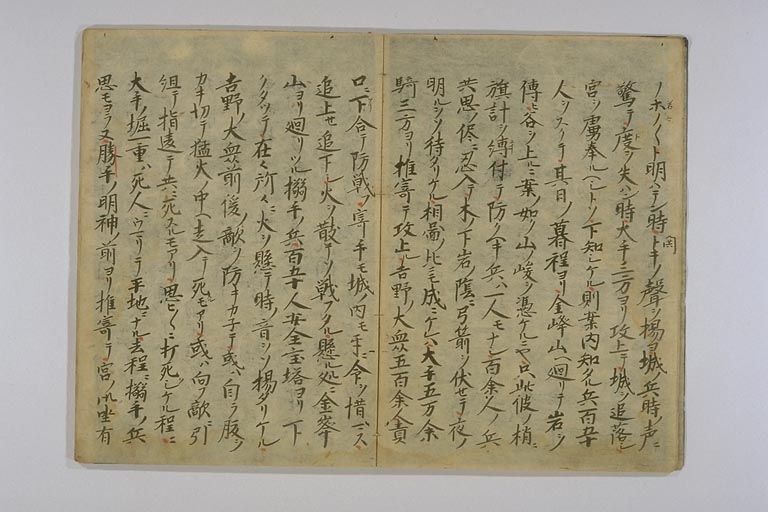 ノホノ〱ト明ハテン時トキノ聲ヲ揚ヨ城ノ兵時ノ声ニ
驚テ度ヲ失ハン時大手三方ヨリ攻上テ城ヲ追落シ
宮ヲ虜奉ルヘシトソ下知シケル則案内知タル兵百五十
人ヲスクテ其日ノ暮程ヨリ金峰山ヘ廻リテ岩ヲ
傳ヒ谷ヲ上ルニ案ノ如ク山ノ峻ヲ憑ケルニヤ只此彼ノ梢ニ
旗計ヲ縛付テ防ク兵ハ一人モナシ百余人ノ兵
共思ノ侭ニ忍入テ木ノ下岩ノ陰ニ弓箭ヲ伏セテ夜ノ
明ルヲソ待タリケル相圖ノ比ニモ成ニケレハ大手五万余
騎三方ヨリ推寄テ攻上ル吉野ノ大衆五百余人責
口ニ下合テ防戦フ寄手モ城ノ内モ手ニ命ヲ惜マス
追上セ追下シ火ヲ散テソ戦フタル懸ル処ニ金峯
山ヨリ廻リツル搦手ノ兵百五十人愛金宝塔ヨリ下
ノタツテ在々所々ニ火ヲ懸テ時ノ音ヲソ揚タリケル
吉野ノ大衆前後ノ敵ヲ防キカ子テ或ハ自ラ腹ヲ
カキ切テ猛火ノ中ヘ走入テ死モアリ或ハ向フ敵ニ引
組テ指違テ共ニ死スルモアリ思ヒ〱ニ打死シケル程ニ
大手ノ堀一重ハ死人ニウマリテ平地ニナル去程ニ搦手ノ兵
思モヨラス勝手ノ明神ノ前ヨリ推寄テ宮ノ御坐有